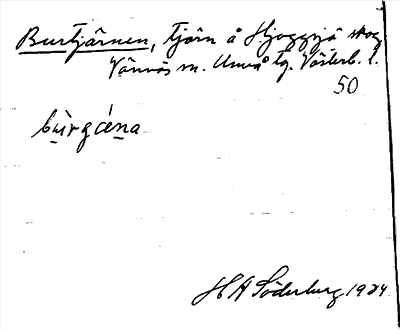 Burtjärnen, tjärn å Hjoggsjö skog
Vännäs sn. Umeå tg. Västerb. l.
50
bu̱rgȧ́ṉa
H A Söderburg 1924